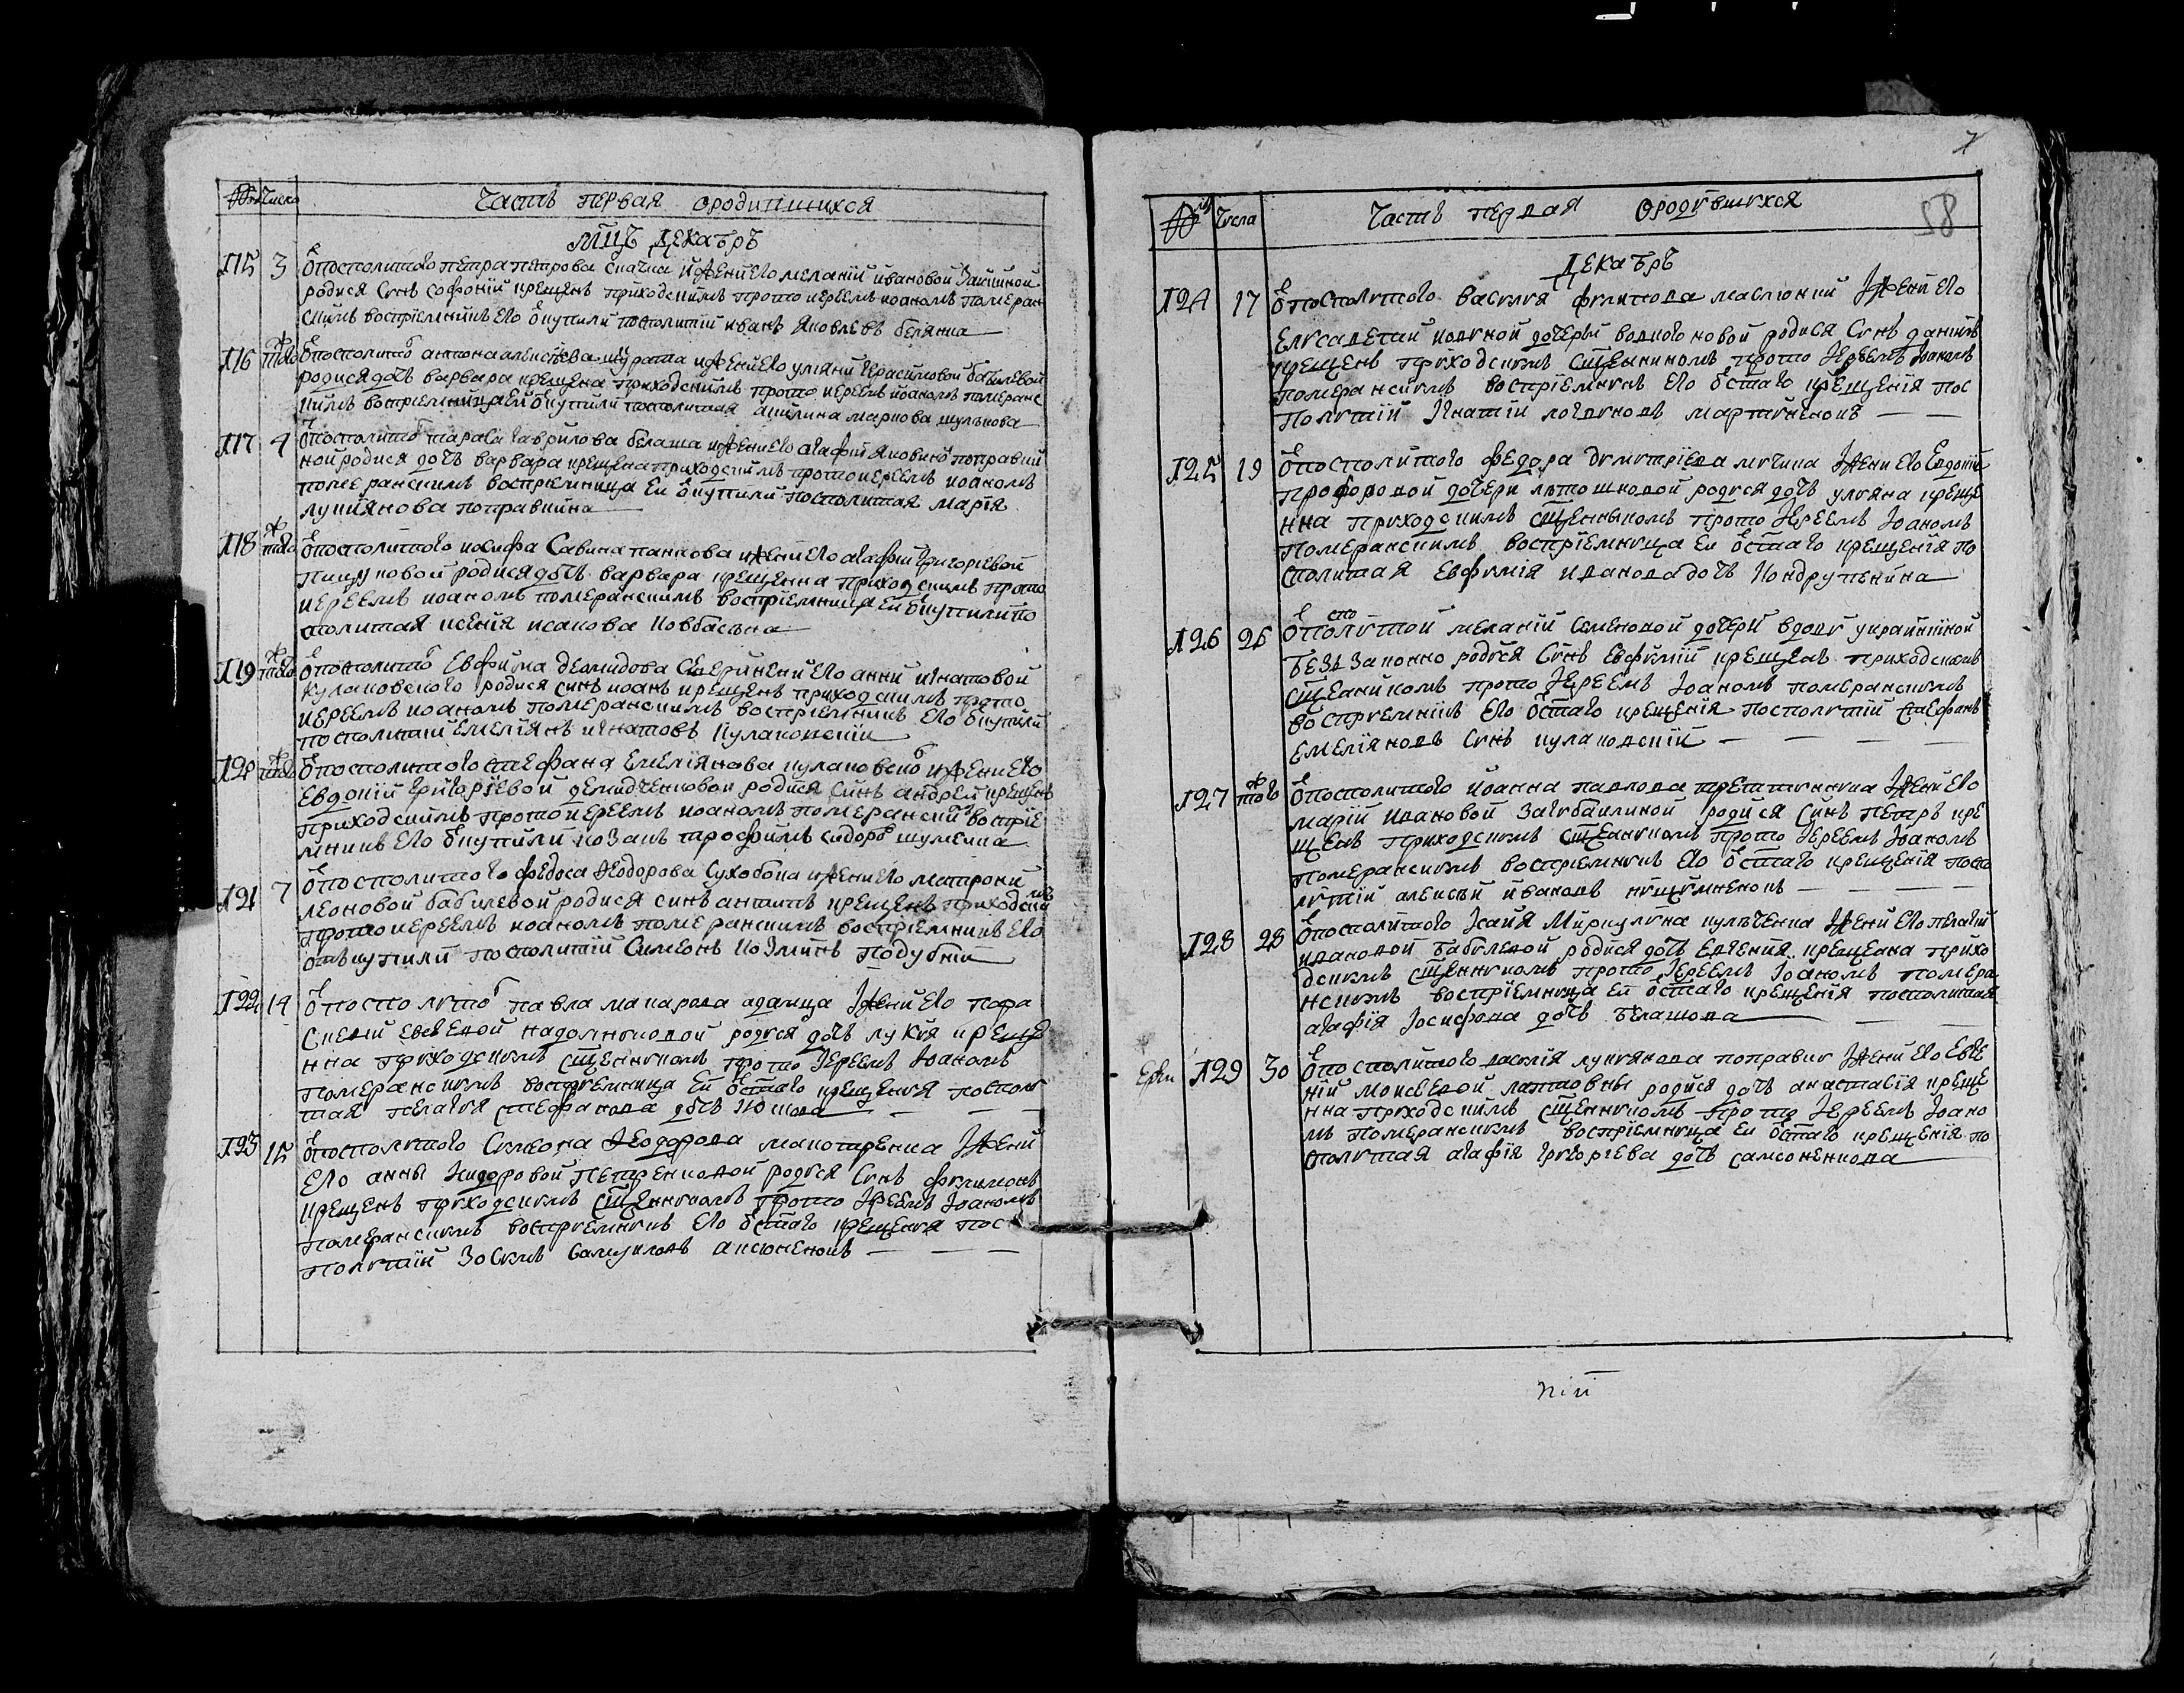 № Число Часть первая о родившихся
Мцъ Декабръ
115 3 ѿ посполитого петра петрова скачка и жени его меланїй ивановой Заикиной
родися Синъ софонїй крещенъ приходскимъ прото иереемъ иоаномъ померан
скимъ воспрїемникъ его ѿ купили посполитїй иванъ Яковлевъ белянка
116 того ѿ посполито антона алексѣева шурапа и жени его уляни Герасимовой бабилевой
родися дочъ варвара крещена приходскимъ прото иереемъ иоаномъ померанс
кимъ воспрїемница ей ѿ купили посполитая акилина маркова шулкова
117 4 ѿ посполито тараса гаврилова белаша и жени его агафїй
ной родися дочъ варвара крещена приходскимъ прото иереемъ иоаномъ
померанскимъ воспрїемница ей ѿ купили посполитая Марїя
лукиянова поправкина
118 того ѿ посполитого иосифа Савина панкова и жени его агафїй Григорїевой
родися дочъ варвара крещенна приходскимъ прото
иереемъ иоаномъ померанскимъ воспрїемница ей ѿ купили по
сполитая ксенїя исакова ковбасъна
119 того ѿ посполито Евфима демидова жени его анни игнатовой
кулаковского родися синъ иоанъ крещенъ приходскимъ прото
иереемъ иоаномъ померанскимъ воспрїемникъ его ѿ купили
посполитїй Емелїянъ игнатовъ кулаковскїи
120 того ѿ посполитого стефана Емелїянова кулаковско и жени его
Евдокїй Григорїевой демидченковой родися Синъ андрей крещенъ
приходскимъ прото иереемъ иоаномъ померанским воспрїе
мникъ его ѿ купили козакъ трофимъ сидоровъ шулмейка
121 7 ѿ посполитого федоса Феодорова Сухобока и жени его матрони
леоновой бабилевой родися синъ антипъ крещенъ приходскимъ
прото иереемъ иоаномъ померанскимъ воспрїемникъ его
отъ купили посполитїй Симеонъ козминъ подубнїй
122 14 ѿ посполито павла макарова адамца Жени его пара
скевїй евсевой надолняковой родися дочъ лукїя креще
нна приходскимъ сщенникомъ прото Іереемъ Іоаномъ
померанскимъ воспрїемница ей ѿ стаго крещенїя посполи
тая пелагїя стефанова дочъ
123 15 ѿ посполитого Симеона Феодорова макотренка Жени
его анны Сидоровой Петренковой родися Синъ филимонъ
крещенъ приходскимъ сщенникомъ прото Іереемъ Іоаномъ
померанскимъ воспрїемникъ его ѿ стаго крещенїя пос
политїй Зосимъ Самуиловъ аксюненокъ
№ Числа Часть первая О родившихся
58
Декабръ
124 17 ѿ посполитого Василїя филипова маслюкий Жени его
Елисаветий дочерЫ родися Синъ данїилъ
крещенъ приходскимъ Сщеникомъ прото Іереемъ Іоаномъ
померанскимъ воспрїемникъ его ѿ стаго крещенїя пос
политїй Игнатїй логвиновъ мартиненокъ
125 19 ѿ посполитого федора димитрїева мигина Жени его Евдокїи
прохоровой дочери литошковой родися дочъ уляна креще
нна приходскимъ сщенныкомъ прото Іереемъ Іоаномъ
померанскимъ воспрїемница ей ѿ стаго крещенїя по
сполитая Евфимїя иванова дочъ кондрупъкина
126 26 ѿ посполитой меланїй семеновой дочерЫ вдови украинкиной
беззаконно родися Синъ Евфимїй крещенъ приходскимъ
сщеникомъ прото Іереемъ Іоаномъ померанскимъ
воспрїемникъ его ѿ стаго крещенїя посполитїй стефанъ
емелїяновъ Синъ кулаковскїй
127 того ѿ посполитого иоанна павлова Жени его
марїй ивановой Загибаилиной родися Синъ Петръ кре
щенъ приходскимъ сщеникомъ прото Іереемъ Іоаномъ
померанскимъ воспрїемникъ его ѿ стаго крещенїя поспо
литїй алексѣй ивановъ
128 28 ѿ посполитого Ісаїя Мирцулина кулъченка Жени его пелагїй
ивановой Бабилевой родися дочъ Евгенїя крещенна прихо
дскимъ сщенникомъ прото Іереемъ Іоаномъ помера
нскимъ воспрїемница ей ѿ стаго крещенїя посполитая
агафїя Іосифова дочъ Белашова
129 30 ѿ посполитого василїя лукянова поправки Жени его Евге
нїй моисеевой родися дочъ анастасїя креще
нна приходскимъ сщенникомъ прото Іереемъ Іоано
мъ померанскимъ воспрїемница ей ѿ стаго крещенїя по
сполитая агафїя григорїева дочъ самсоненкова